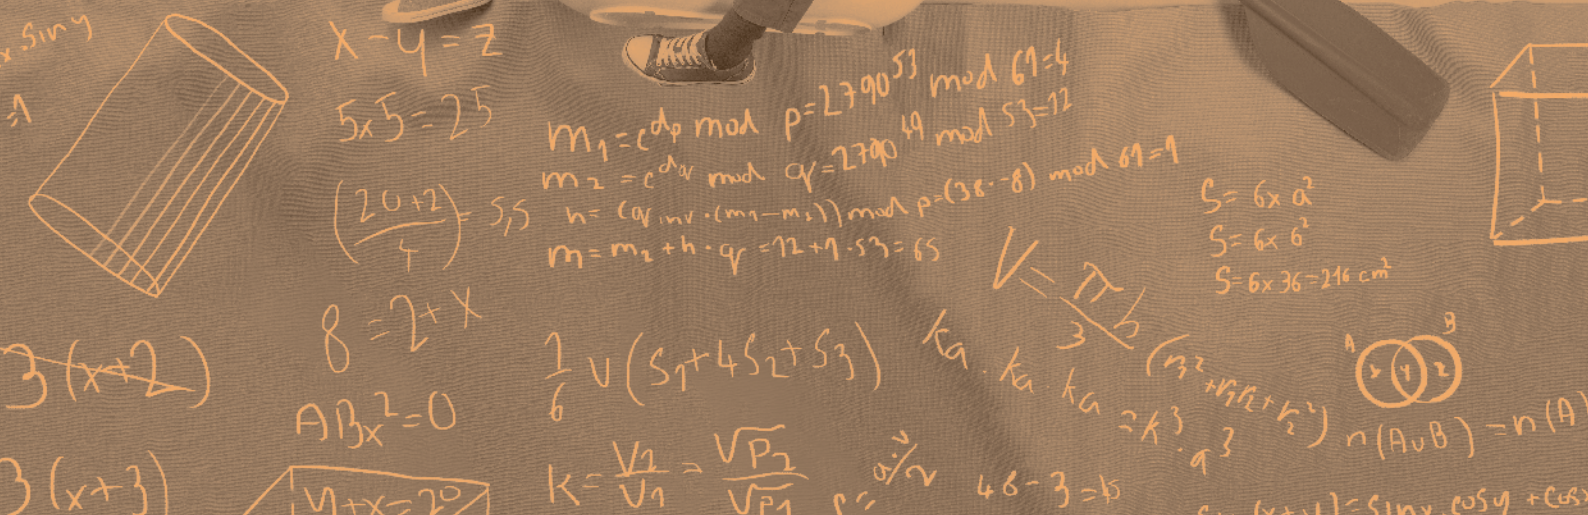 x · siny
=1
x - y = z
5x5 = 25
(20+2 / 4) = 5,5
8 = 2 + x
ABx² = 0
3(x+2)
3(x+3)
y+x=20
m₁ = c^dp mod p = 2790^53 mod 61 = 4
m₂ = c^dq mod q = 2790^49 mod 53 = 12
h = (q inv · (m₁ - m₂)) mod p = (38 · -8) mod 61 = 1
m = m₂ + h · q = 12 + 1 · 53 = 65
1/6 v (S₁ + 4S₂ + S₃)
k = V₂/V₁ = √P₂/√P₁
V = πh/3 (r₁² + r₁r₂ + r₂²)
ka · ka · ka = k³ · a³
48 - 3 = 45
S = 6x a²
S = 6x 6²
S = 6x 36 = 216 cm²
A B
x y z
n(A∪B) = n(A)
(x+y) = sinx · cosy + cosx